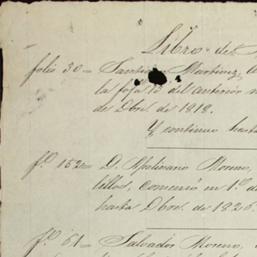 Libro de
folio 30= Santi Martinez,
la foja 13 del anterior
de Dbre. de 1818.
Y continuo hasta
fo. 152= D. Apolinario Moreno,
tellos, comenzó en 1o. de
hasta Dbre. de 1826.
fo. 61= Salvador Moreno,